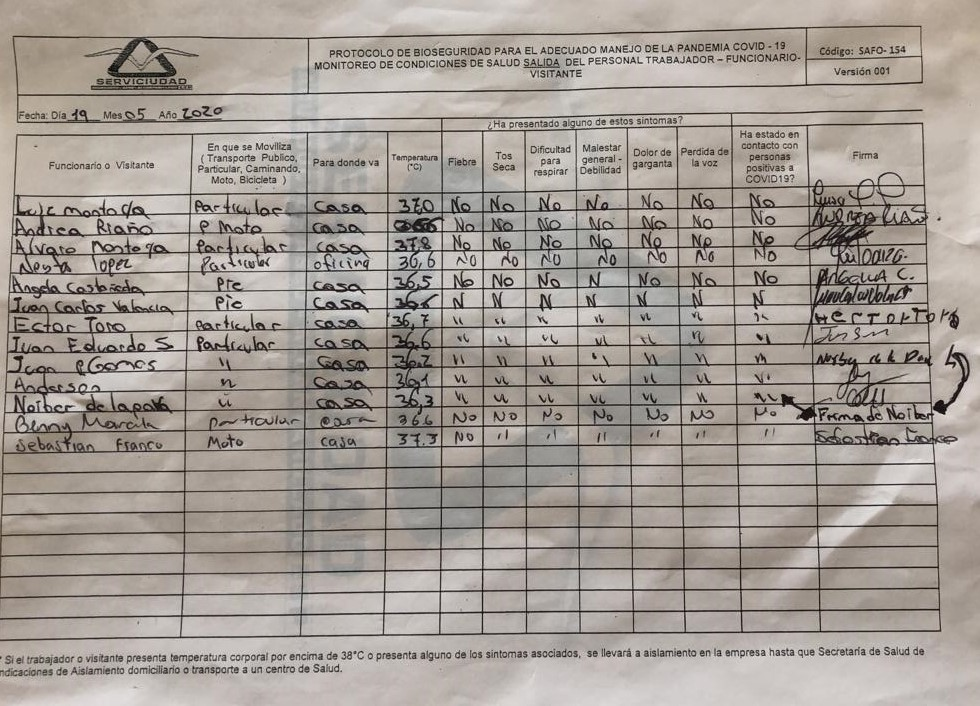 SERVICIUDAD
PROTOCOLO DE BIOSEGURIDAD PARA EL ADECUADO MANEJO DE LA PANDEMIA COVID - 19
MONITOREO DE CONDICIONES DE SALUD SALIDA DEL PERSONAL TRABAJADOR – FUNCIONARIO-
VISITANTE
Código: SAFO- 154
Versión 001
Fecha: Día 19 Mes 05 Año 2020
¿Ha presentado alguno de estos sintomas?
Funcionario o Visitante En que se Moviliza ( Transporte Publico, Particular, Caminando, Moto, Bicicleta ) Para donde va Temperatura (°C) Fiebre Tos Seca Dificultad para respirar Malestar general - Debilidad Dolor de garganta Perdida de la voz Ha estado en contacto con personas positivas a COVID19? Firma
Luiz montoya Particular casa 370 No No No No No No No
Andrea Riaño Moto casa No No No No No No No ANDREA RIAÑO.
Alvaro Montoya Particular casa 37.8 No No No No No No No
lopez Particular oficina 36,6 No No No No No No No
Angela Castañeda Pie casa 36,5 No No No N No No No ANGELLA C.
Juan Carlos Valencia Pie casa N N N N N N N
Ector Toro particular casa 36,7 " " " " " " " HECTOR TORO
Juan Eduardo S Particular casa 36.6 " " " " " " "
Juan Gomes " casa 36.2 " " " " " " "
Anderson " casa 36,1 " " " " " " "
Noiber de la pava " casa 36,3 " " " " " " "
Benny Marcila particular casa 36.6 No No No No No No No Firma de Noiber
Sebastian Franco Moto casa 37.3 No " " " " " " Sebastian Franco
* Si el trabajador o visitante presenta temperatura corporal por encima de 38°C o presenta alguno de los sintomas asociados, se llevará a aislamiento en la empresa hasta que Secretaría de Salud de
indicaciones de Aislamiento domiciliario o transporte a un centro de Salud.